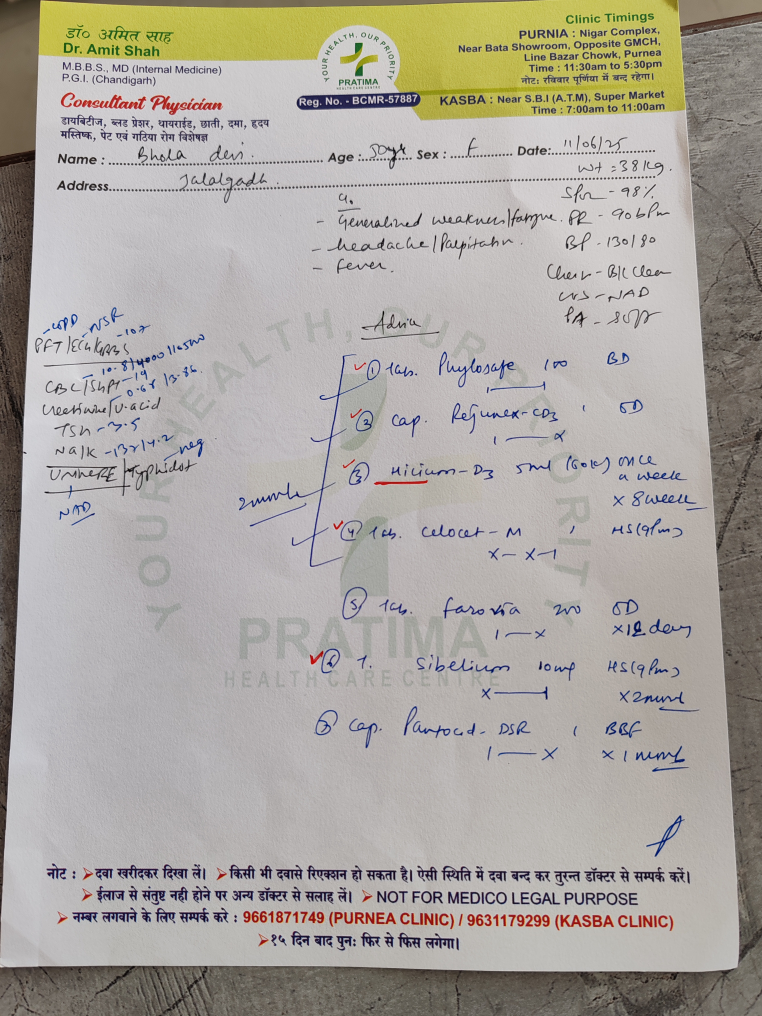 डॉ० अमित साह
Dr. Amit Shah
M.B.B.S., MD (Internal Medicine)
P.G.I. (Chandigarh)
Consultant Physician
डायबिटीज, ब्लड प्रेशर, थायराईड, छाती, दमा, हृदय
मस्तिष्क, पेट एवं गठिया रोग विशेषज्ञ
YOUR HEALTH, OUR PRIORITY
PRATIMA
HEALTH CARE CENTRE
Reg. No. - BCMR-57887
Clinic Timings
PURNIA : Nigar Complex,
Near Bata Showroom, Opposite GMCH,
Line Bazar Chowk, Purnea
Time : 11:30am to 5:30pm
नोट: रविवार पूर्णिया में बन्द रहेगा।
KASBA : Near S.B.I (A.T.M), Super Market
Time : 7:00am to 11:00am
Name : Bhola devi. Age : 50yr Sex : F Date: 11/06/25
Address Jalalgadh
Wt = 38 kg.
SpO2 - 98%
- Generalised weakness/fatigue. PR - 90bpm
- headache/Palpitation. BP - 130/90
- Fever. Chest - B/L Clear
CVS - NAD
PA - Soft
- COPD - NSR
PFT/ECG/RBS - 107
- 10.8/4000/
CBC/SGPT - 19
- 0.68/3.86
Creatinine/U.acid
TSH - 3.5
Na/K - 132/4.2 - neg
URINE RE/Typhidot
NAD
Advice
① Tab. Phylosafe 100 BD
② Cap. Rejunex-CD3 1 OD
1 — x
③ Milium-D3 5ml (60k) once
a week
x 8 week
2 month
④ Tab. Celocet-M 1 HS (9pm)
x - x - 1
⑤ Tab. Farovia 200 OD
1 — x x 12 days
⑥ T. Sibelium 10mg HS (9pm)
x — 1 x 2 month
⑦ Cap. Pantocid-DSR 1 BBF
1 — x x 1 month
YOUR HEALTH, OUR PRIORITY
PRATIMA
HEALTH CARE CENTRE
नोट : ➢दवा खरीदकर दिखा लें। ➢किसी भी दवासे रिएक्शन हो सकता है। ऐसी स्थिति में दवा बन्द कर तुरन्त डॉक्टर से सम्पर्क करें।
➢ईलाज से संतुष्ट नही होने पर अन्य डॉक्टर से सलाह लें। ➢NOT FOR MEDICO LEGAL PURPOSE
➢नम्बर लगवाने के लिए सम्पर्क करे : 9661871749 (PURNEA CLINIC) / 9631179299 (KASBA CLINIC)
➢१५ दिन बाद पुन: फिर से फिस लगेगा।